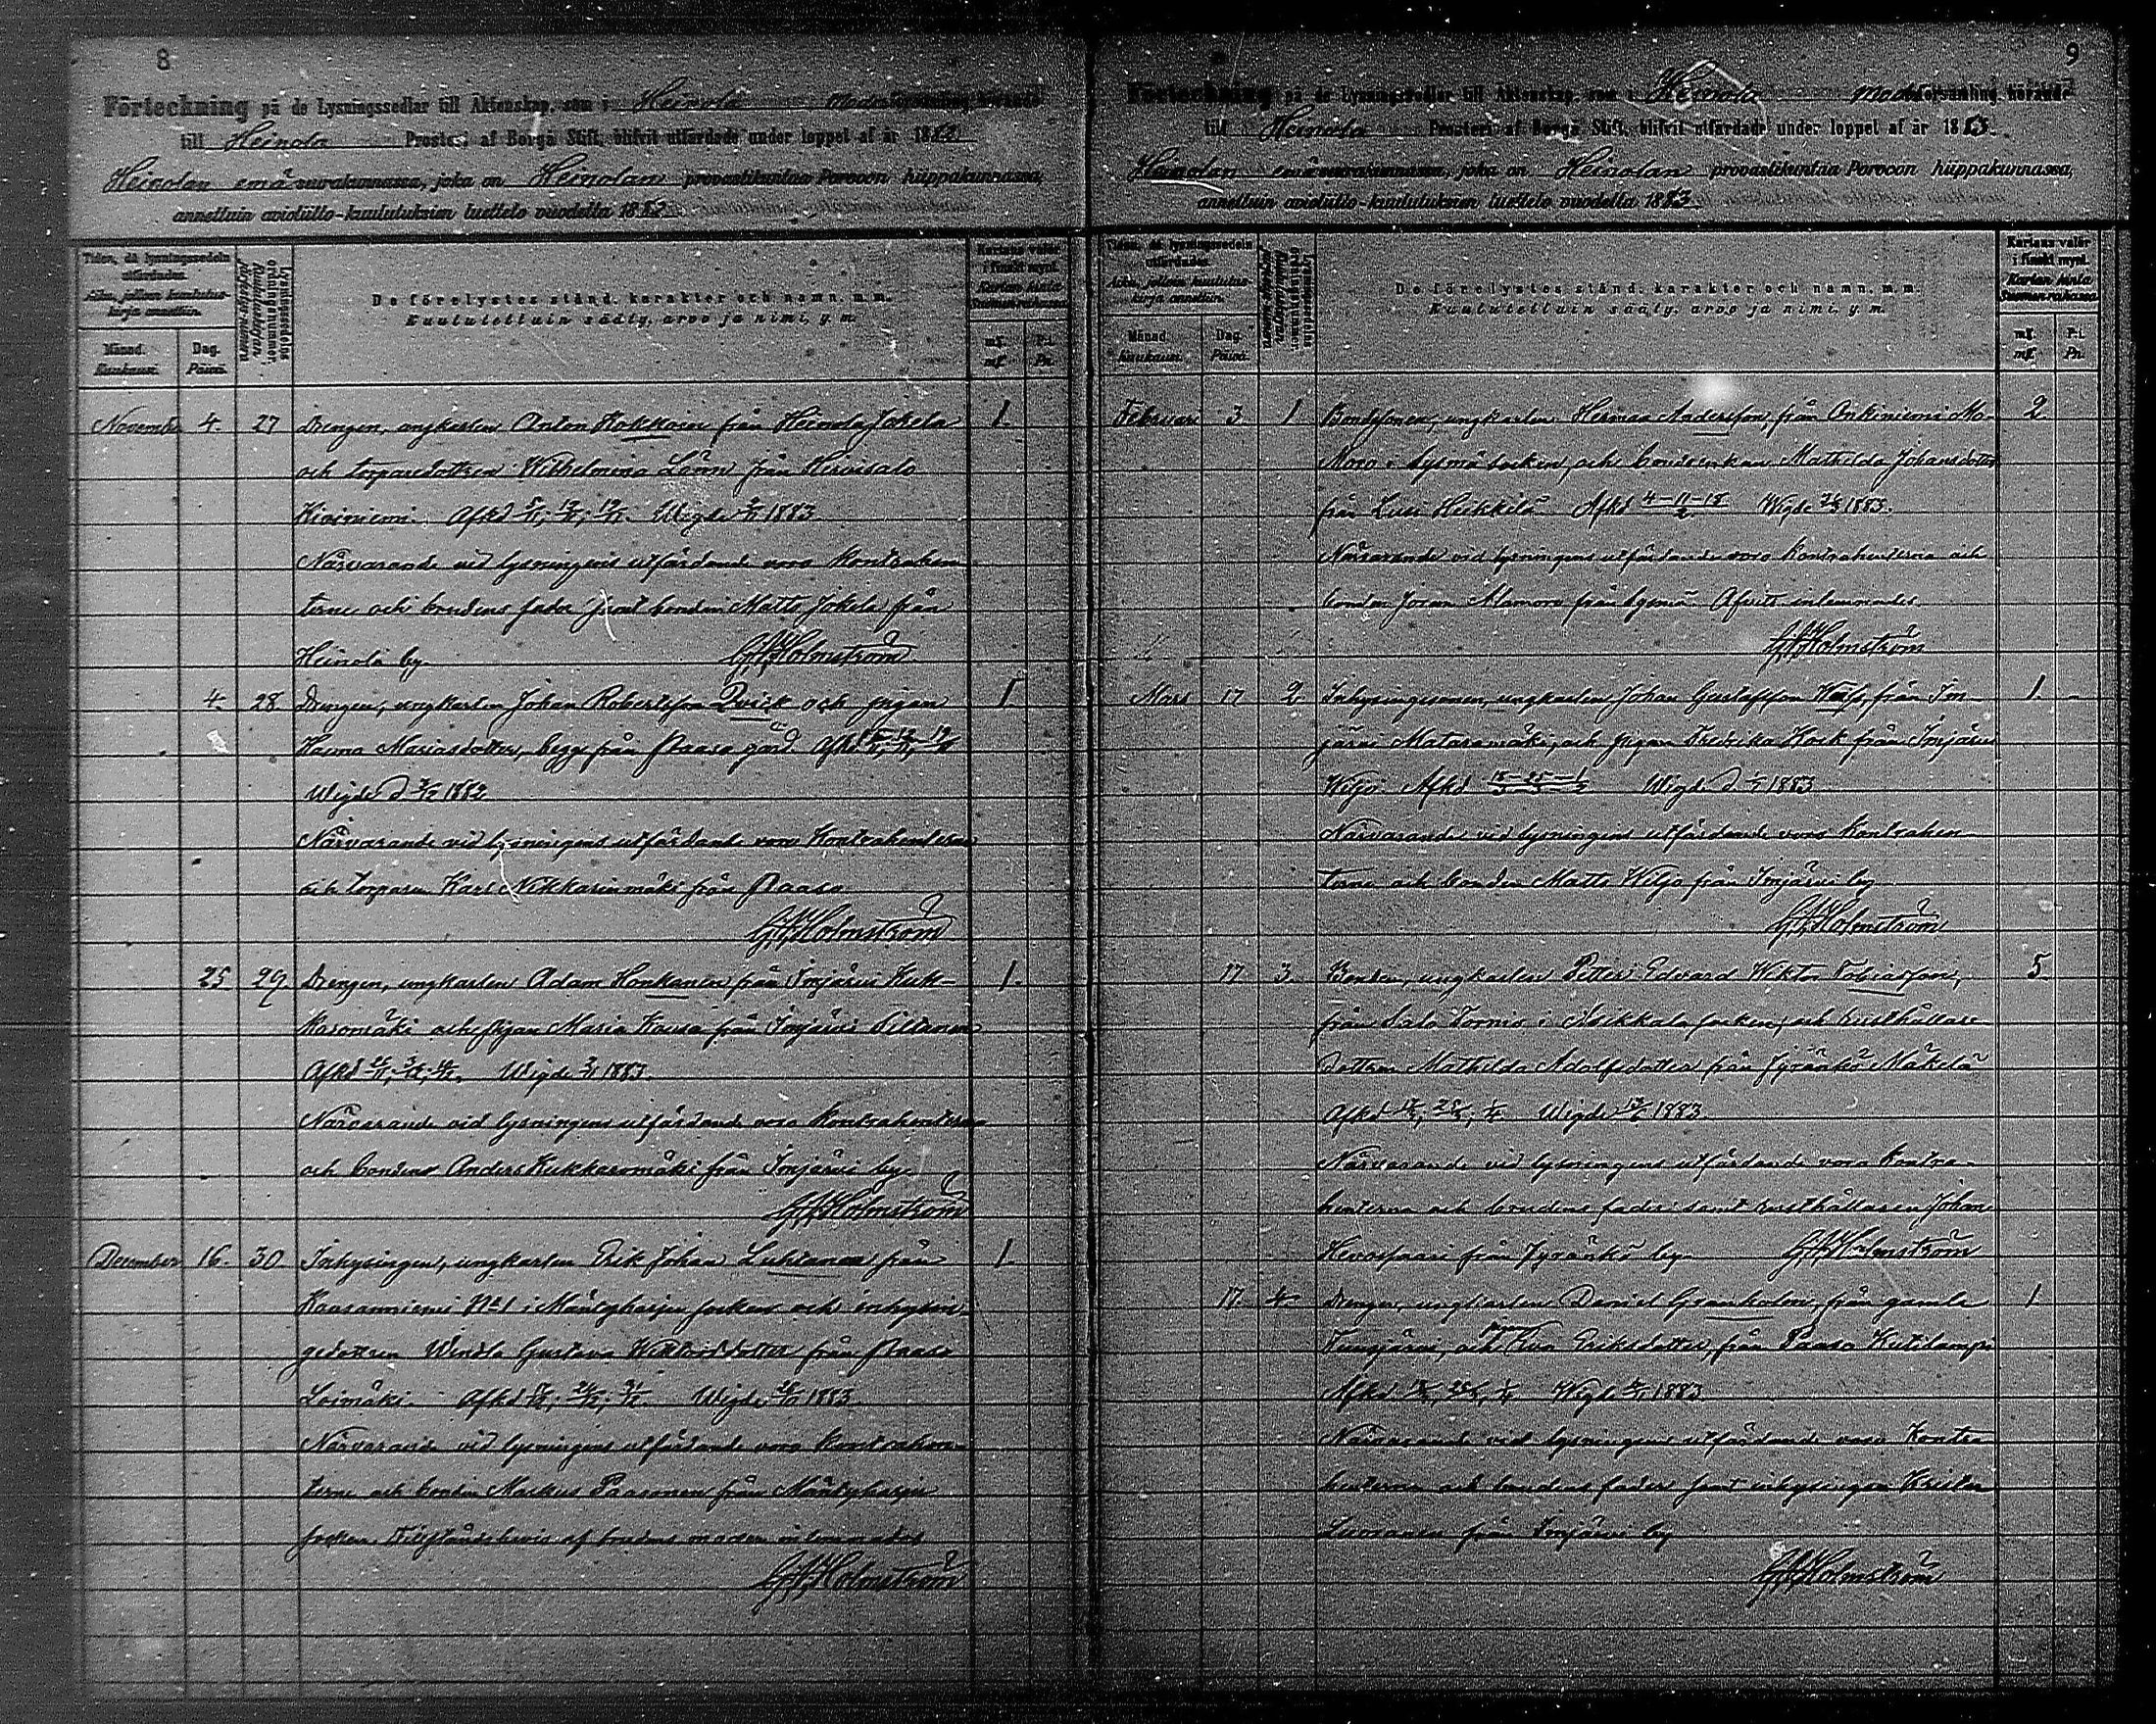 8
Förteckning på de Lysningssedlar till Äktenskap, som i Heinola Moderförsamling, hörande
till Heinola Prosteri af Borgå Stift, blifvit utfärdade under loppet af år 1882
Heinolan emäseurakunnassa, joka on Heinolan provastikuntaa Porvoon hiippakunnassa,
annettuin avioliitto-kuulutuksien luettelo vuodella 1882
Tiden, då lysningssedeln utfärdades.
Aika, jolloin kuulutus-kirja annettiin.
Månad. Kuukausi.
Dag. Päivä.
Lysningssedelns ordningsnummer.
Kuulutuskirjan järjestys-numero
De förelystes stånd, karakter och namn, m. m.
Kuulutettuin sääty, arvo ja nimi, y. m.
Kartans valör i finskt mynt.
Kartan hinta Suomen rahassa.
mf. mf.
P:i. Pn.
November 4. 27 Drengen, ungkarlen Anton Hokkanen från Heinola Jokela 1.
och torparedottren Wilhelmina Lönn från Hirvisalo
Kiviniemi. Afkd 5/11, 12/11, 19/11. Wigde 1883
Närvarande vid lysningens utfärdande voro Kontrahen
terne och brudens fader samt bonden Matts Jokela från
Heinola by. Holmström
4. 28 Drengen, ungkarlen Johan Robertsson Qvick och pigan 1
Maria Mariasdotter, begge från Paaso gård Afkd 5/11, 12/11, 19/11
Wigde d 1882
Närvarande vid lysningens utfärdande voro Kontrahenterne
och torparen Karl Nikkarinmäki från Paaso
Holmström
25 29. Drengen, ungkarlen Adam Honkanen från Imjärvi Kuk- 1.
kasomäki och pigan Maria Kausa från Imjärvi Siltanen
Afkd 26/11, 3/12, 10/12. Wigde 1883.
Närvarande vid lysningens utfärdande voro Kontrahenterne
och bonden Anders Kukkasomäki från Imjärvi by.
Holmström
December 16. 30. Inhysingen, ungkarlen Erik Johan Luhtanen från 1.
Kaasanniemi No 1 i Mäntyharju socken och inhysin
gedottren Wendla Gustava Wiktorsdotter från Paaso
Loimäki. Afkd 17/12, 24/12, 31/12. Wigde 1883.
Närvarande vid lysningens utfärdande voro Kontrahen
terne och bonden Markus Paasonen från Mäntyharju
socken. Tillståndsbevis af brudens moder inlemnades
Holmström
9
Förteckning på de Lysningssedlar till Äktenskap, som i Heinola Moderförsamling, hörande
till Heinola Prosteri af Borgå Stift, blifvit utfärdade under loppet af år 1883.
Heinolan emäseurakunnassa, joka on Heinolan provastikuntaa Porvoon hiippakunnassa,
annettuin avioliitto-kuulutuksien luettelo vuodella 1883
Tiden, då lysningssedeln utfärdades.
Aika, jolloin kuulutus-kirja annettiin.
Månad. Kuukausi.
Dag. Päivä.
Lysningssedelns ordningsnummer.
Kuulutuskirjan järjestys-numero
De förelystes stånd, karakter och namn, m. m.
Kuulutettuin sääty, arvo ja nimi, y. m.
Kartans valör i finskt mynt.
Kartan hinta Suomen rahassa.
mf. mf.
P:i. Pn.
Februari 3 1 Bondesonen, ungkarlen Herman Andersson, från Onkiniemi Ma- 2
Moro i Sysmä socken, och bondenkan Mathilda Johansdotter
från Lusi Heikkilä Afkd 4-11-18/2. Wigde 1883.
Närvarande vid lysningens utfärdande voro Kontrahenterna och
bonden Johan Mamoro från Sysmä Afvitt. inlemnades.
Holmström
Mars 17 2 Inhysingesonen, ungkarlen Johan Gustafsson från Im- 1 -
järvi Mataramäki, och pigan Fredrika Hack från Imjärvi
Wiljo. Afkd 18-25-1 Wigde d 1883
Närvarande vid lysningens utfärdande voro Kontrahen
terne och bonden Matts Wiljo från Imjärvi by
Holmström
17 3. Bonden, ungkarlen Petter Edvard Wiktor Tobiasson, 5.
från Salo Tornio i Asikkala socken, och rusthållare
dottren Mathilda Adolfsdotter från Jyränkö Mäkelä
Afkd 18/3, 25/3, 1/4 Wigde 1883
Närvarande vid lysningens utfärdande voro Kontra-
henterna och brudens fader samt rusthållaren Johan
från Jyränkö by. Holmström
17. 4 Drengen, ungkarlen Daniel Granholm, från gamla 1
och pigan Eva Eriksdotter, från Paaso Kutilampi
Afkd 18/3, 25/3, 1/4 Wigde 1883
Närvarande vid lysningens utfärdande voro Kontra
henterna och brudens fader samt inhysingen Krister
från Imjärvi by
Holmström